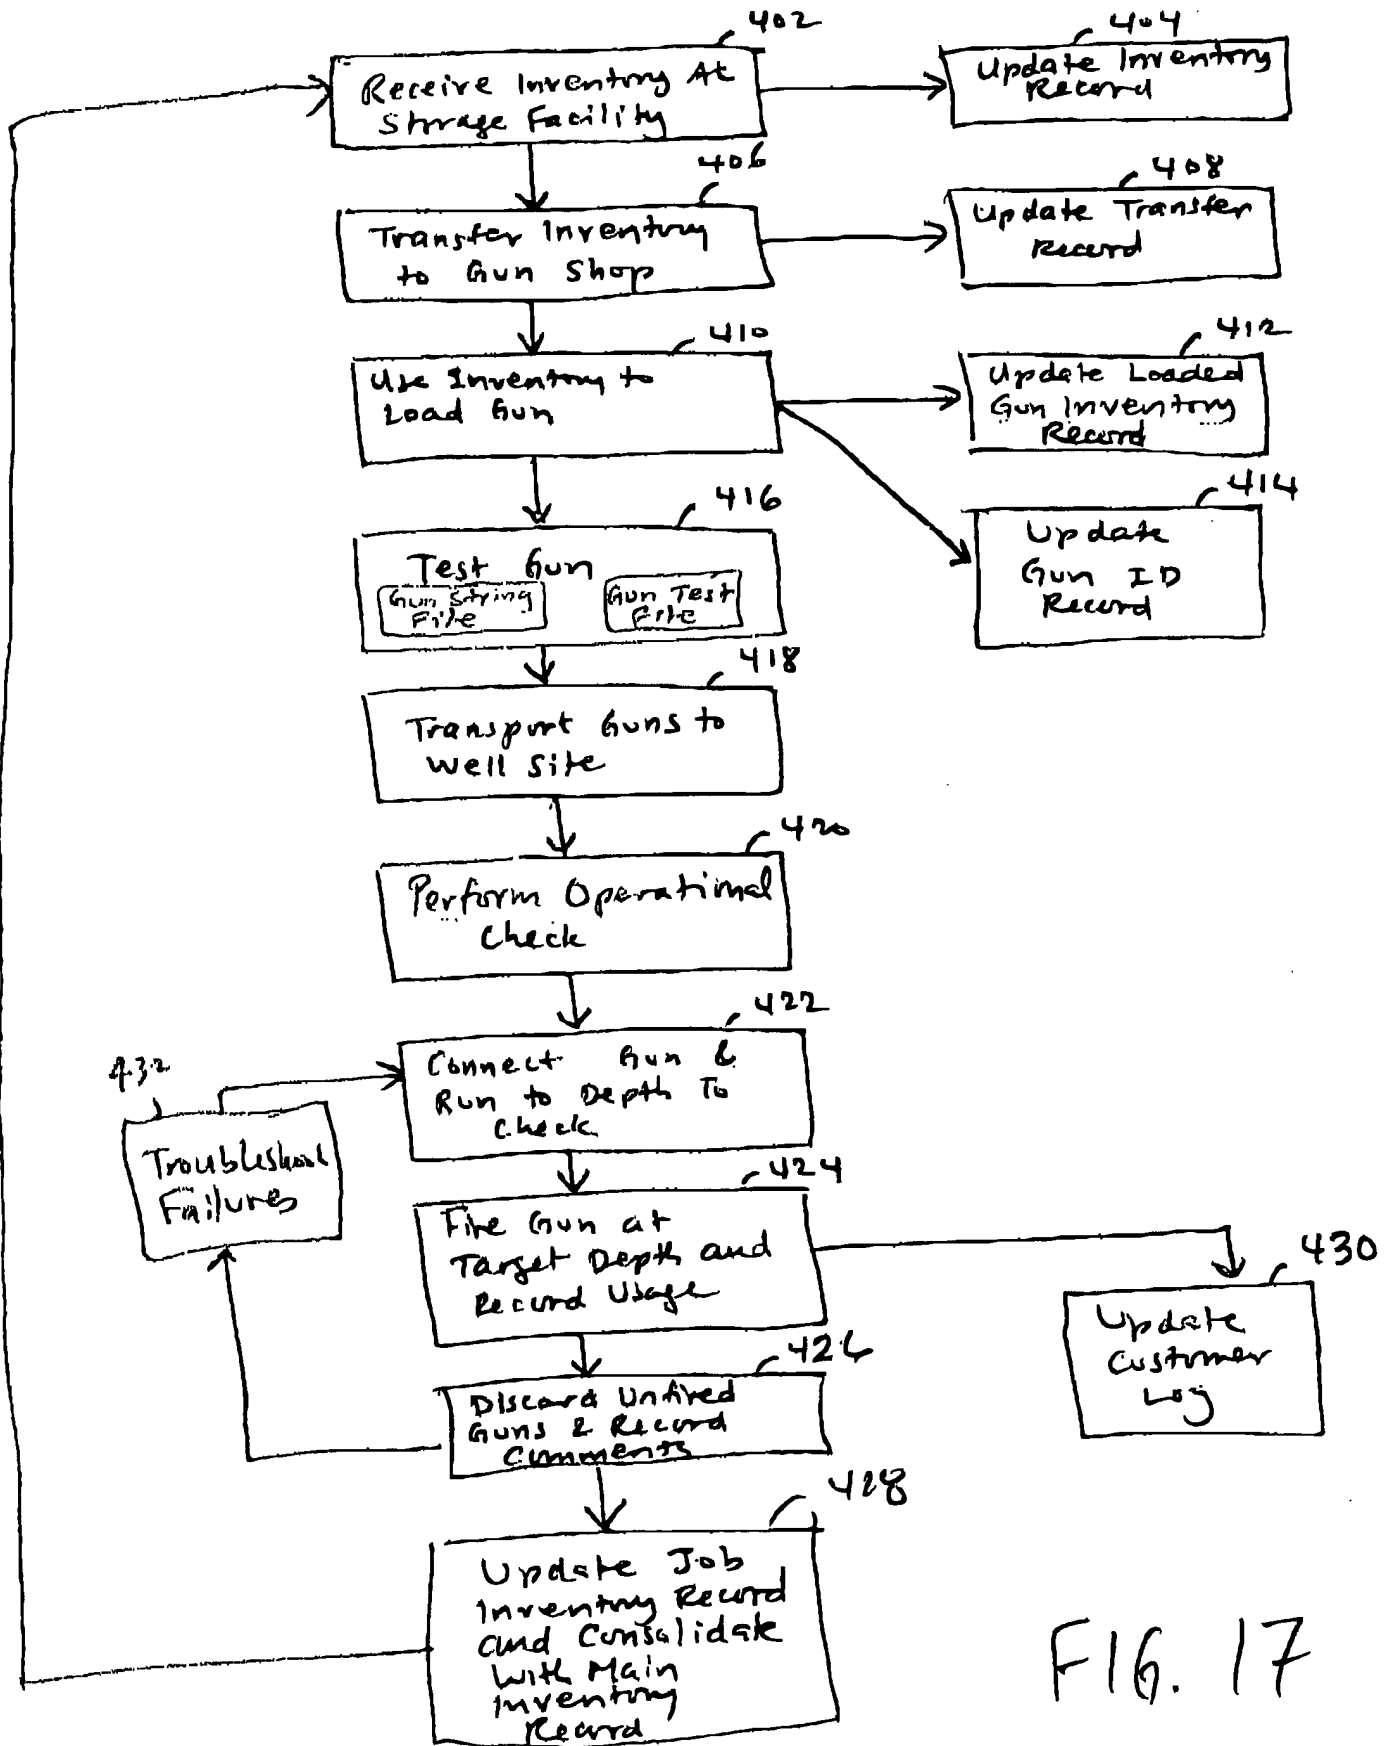 402
Receive Inventory At
Storage Facility
404
Update Inventory
Record
406
Transfer Inventory
to Gun Shop
408
Update Transfer
Record
410
Use Inventory to
Load Gun
412
Update Loaded
Gun Inventory
Record
414
Update
Gun ID
Record
416
Test Gun
Gun String
File
Gun Test
File
418
Transport Guns to
Well Site
420
Perform Operational
Check
422
Connect Gun &
Run to Depth To
Check
432
Troubleshoot
Failures
424
Fire Gun at
Target Depth and
Record Usage
430
Update
Customer
Log
426
Discard Unfired
Guns & Record
Comments
428
Update Job
Inventory Record
and Consolidate
With Main
Inventory
Record
FIG. 17